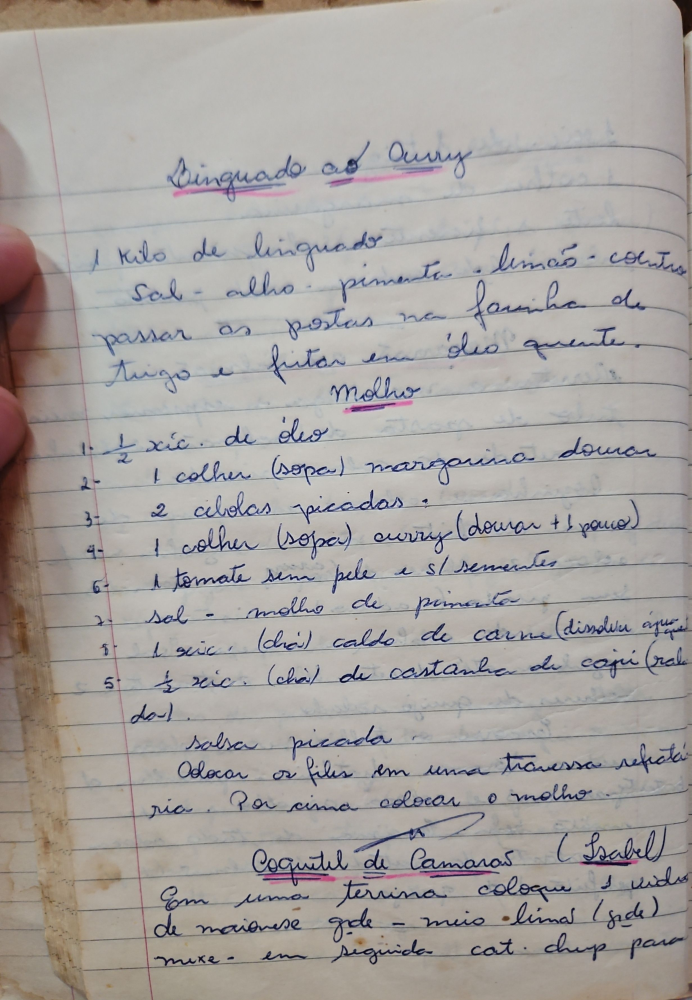 Linguado ao Curry
1 Kilo de linguado
Sal - alho - pimenta - limão - coentro
passar as postas na farinha de
trigo e fritar em óleo quente.
Molho
1- 1/2 xíc. de óleo
2- 1 colher (sopa) margarina dourar
3- 2 cebolas picadas.
4- 1 colher (sopa) curry (dourar + 1 pouco)
6- 1 tomate sem pele e s/ sementes
7- sal - molho de pimenta
8- 1 xic. (chá) caldo de carne (dissolver água
5- 1/2 xic. (chá) de castanha de cajú (rala
da).
salsa picada.
Colocar os files em uma travessa refratá
ria. Por cima colocar o molho.
Coquitel de Camarão (Isabel)
Em uma terrina coloque 1 vidro
de maionese gde - meio limão (gde)
mexe - em seguida cat-chup para